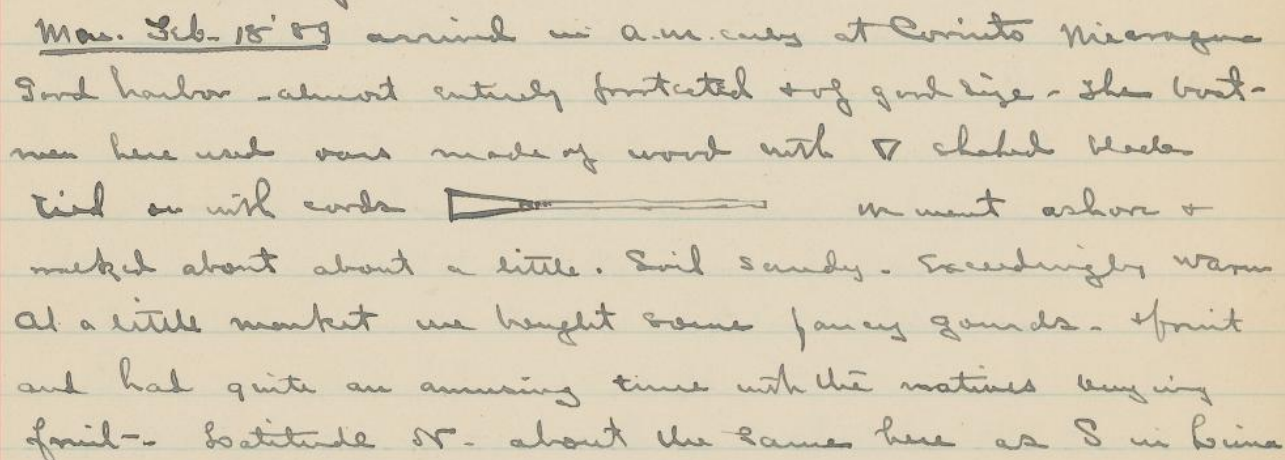 Mon. Feb. 18 '89 arrived in a.m. early at Corinto Nicaragua
Good harbor - almost entirely protected & of good size - The boat-
men here used oars made of wood with ▽ shaped blades
tied on with cords we went ashore &
walked about about a little. Soil sandy. Exceedingly warm
At a little market we bought some fancy gourds - & fruit
and had quite an amusing time with the natives buying
fruit - Latitude N. about the same here as S in Lima